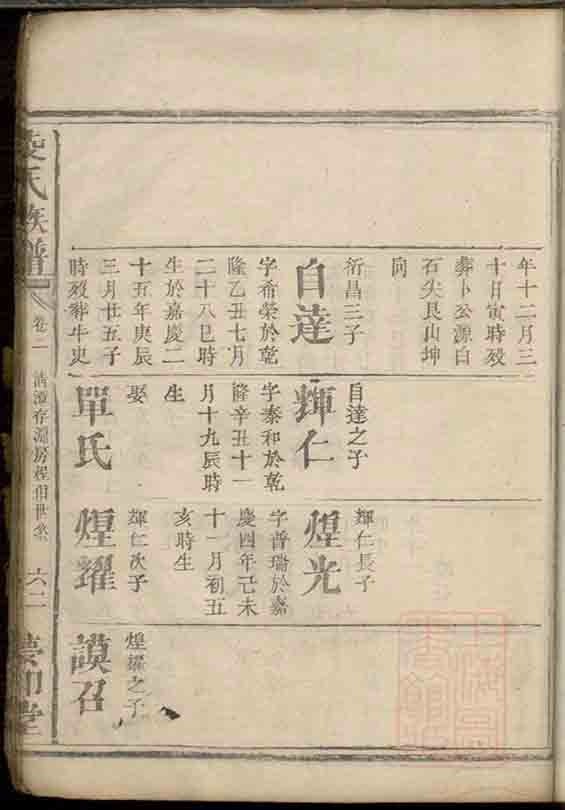 年十二月三
十日寅時歿
葬卜公源白
石尖艮山坤
向
衍昌三子
自達
字希榮於乾
隆乙丑七月
二十八巳時
生於嘉慶二
十五年庚辰
三月廿五子
時歿葬牛史
自達之子
輝仁
字泰和於乾
隆辛丑十一
月十九辰時
生
娶
單氏
輝仁長子
煌光
字普瑞於嘉
慶四年己未
十一月初五
亥時生
輝仁次子
煌耀
煌耀之子
謨召
氏族譜
卷二
清潭存源房程佀世系
六二